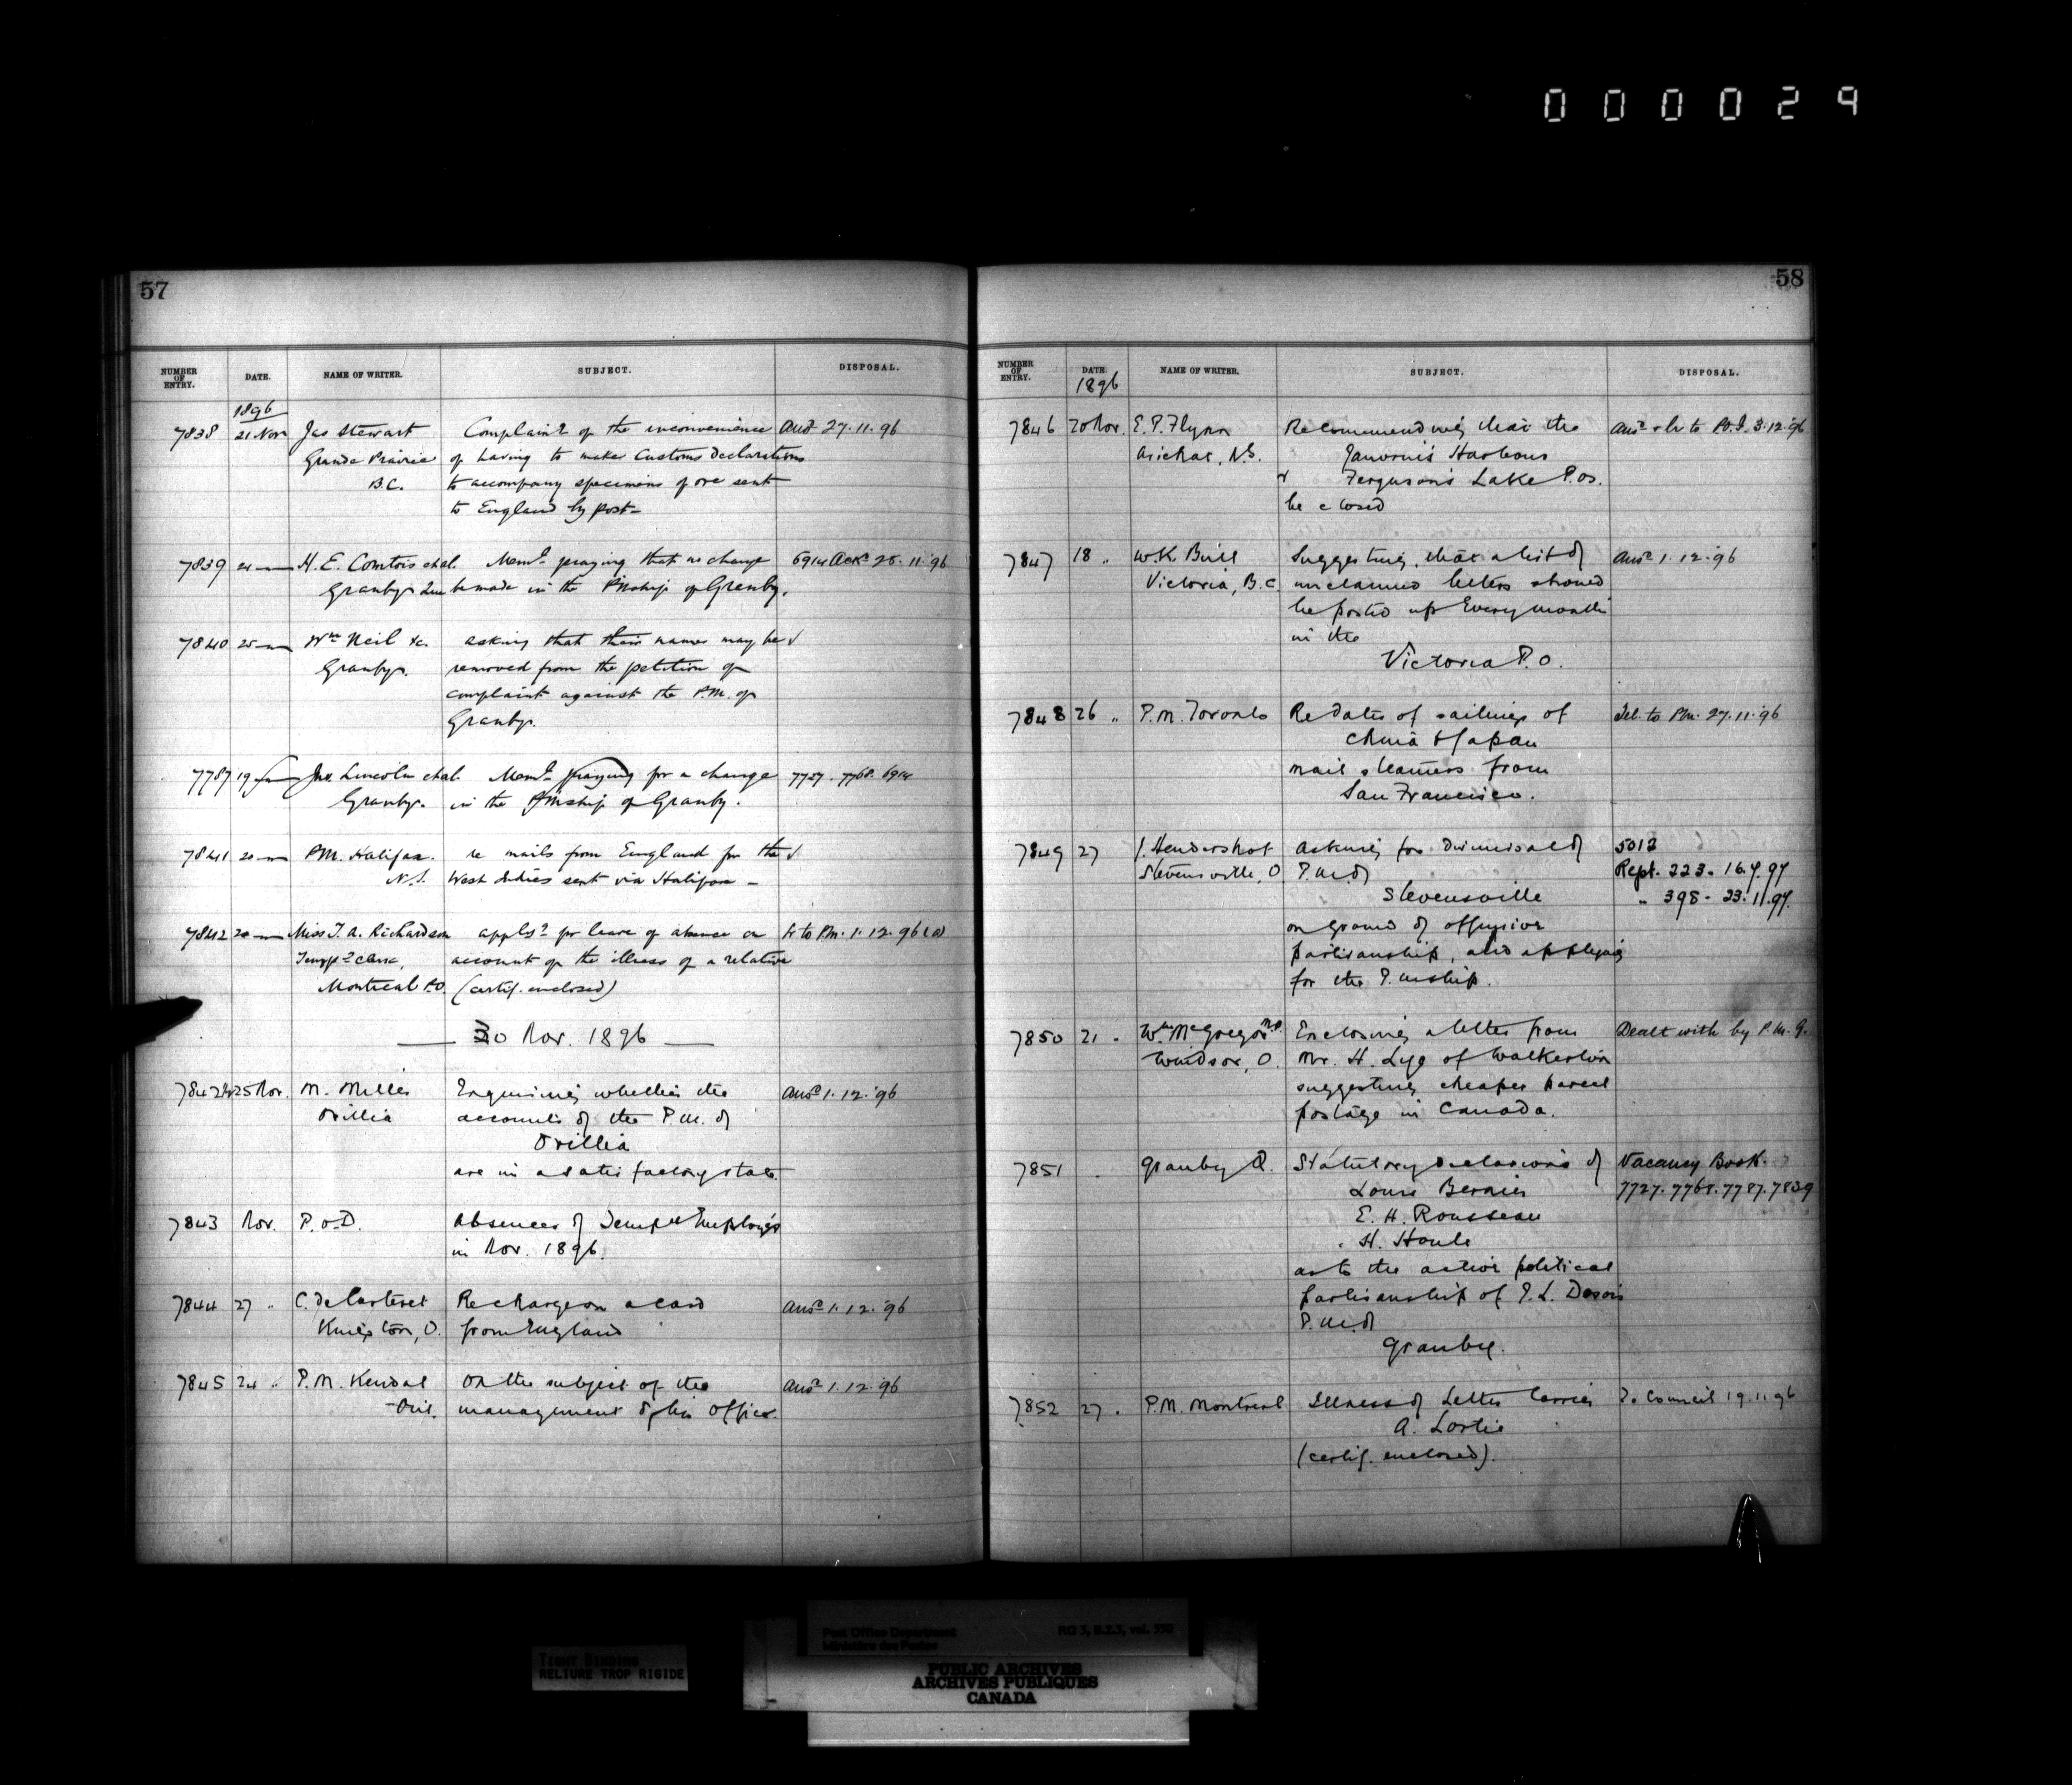 000029
57
NUMBER OF ENTRY. DATE. NAME OF WRITER. SUBJECT. DISPOSAL.
1896
7838 21 Nov Jas Stewart Complain.g of the inconvenience Ansd 27.11.96
Grande Prairie of having to make Customs Declarations
B.C. to accompany specimens of ore sent
to England by post-
7839 H. E. Comtois et al. Meml. praying that no change 6914 Ackd 28.11.96
Granby Que be made in the PMship of Granby.
7840 25 Wm Neil &c. asking that their names may be √
Granby. removed from the petition of
complaint against the P.M. of
Granby.
7787 19 Jas Lincoln et al. Meml. praying for a change 7727. 7768. 6914
Granby. in the PMship of Granby.
7841 20 P.M. Halifax. re mails from England for the √
N.S. West Indies sent via Halifax -
7842 Miss T. A. Richardson appln for leave of absence on lr to P.M. 1.12.96 (a)
Tempy clerk, account of the illness of a relative
Montreal P.O. (certif. enclosed)
30 Nov. 1896
7842½ 25 Nov. M. Miller Enquiring whether the Ansd 1.12.96
Orillia accounts of the P.M. of
Orillia
are in a satisfactory state.
7843 Nov. P.O.D. Absences of Tempy Employés
in Nov. 1896.
7844 27 " C. De Carteret Re charge on a card Ansd 1.12.96
Kingston, O. from England
7845 24 " P.M. Kendal On the subject of the Ansd 1.12.96
Ont. management of his Office.
58
NUMBER OF ENTRY. DATE. NAME OF WRITER. SUBJECT. DISPOSAL.
1896
7846 20 Nov. E. P. Flynn Recommending that the Ansd & lr to P.O.I. 3.12.96
Arichat, N.S. Janvrin's Harbour
& Ferguson's Lake P.Os.
be closed
7847 18 " W. K. Bull Suggesting that a list of Ansd 1.12.96
Victoria, B.C. unclaimed letters should
be posted up every month
in the
Victoria P.O.
7848 26 " P.M. Toronto Re Dates of sailings of Tel. to P.M. 27.11.96
China & Japan
mail steamers from
San Francisco.
7849 27 J. Hendershot Asking for dismissal of 5013
Stevensville, O P.M. of Rept. 223. 16.7.97
Stevensville " 398 - 23.11.97.
on ground of offensive
partisanship, and applying
for the P.Mship.
7850 21 " Wm McGregor M.P. Enclosing a letter from Dealt with by P.M.G.
Windsor, O. Mr. H. Lye of Walkerton
suggesting cheaper parcel
postage in Canada.
7851 Granby Q. Statutory declarations of Vacancy Book.
Louis Bernier 7727. 7768. 7787. 7839
E. H. Rousseau
H. Houle
as to the active political
partisanship of P. L.
P.M. of
Granby.
7852 27 " P.M. Montreal Illness of Letter Carrier To Council 19.11.96
A. Lortie
(certif. enclosed).
Post Office Department RG 3, B.2.3, vol. 550
Ministère des Postes
TIGHT BINDING
RELIURE TROP RIGIDE
PUBLIC ARCHIVES
ARCHIVES PUBLIQUES
CANADA